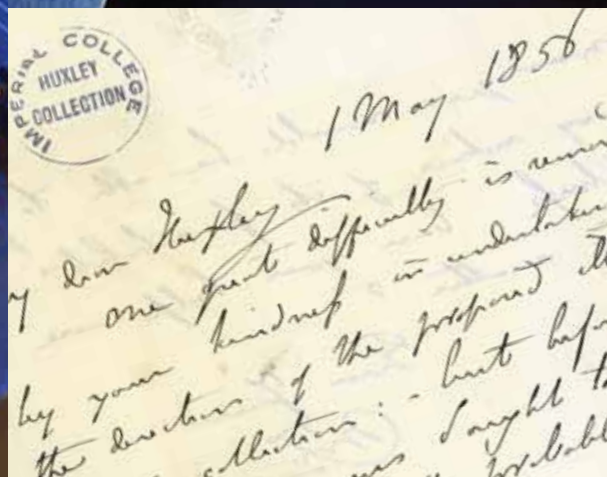 IMPERIAL COLLEGE
HUXLEY
COLLECTION
1 May 1856
dear Huxley
one great difficulty is
by your kindness in
the direction of the proposed
collection: - but
I ought